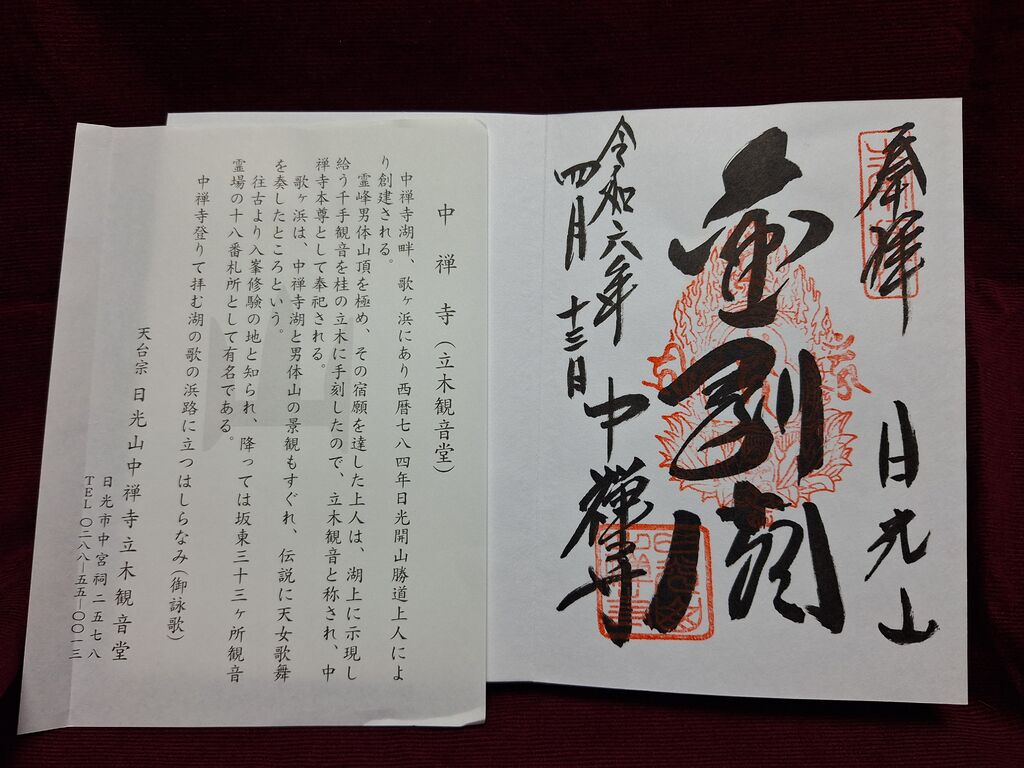 奉拝
日光山
金剛蘭
令和六年
四月 十三日
中禅寺
中禅寺(立木観音堂)
中禅寺湖畔、歌ヶ浜にあり西暦七八四年日光開山勝道上人によ
り創建される。
霊峰男体山頂を極め、その宿願を達した上人は、湖上に示現し
給う千手観音を桂の立木に手刻したので、立木観音と称され、中
禅寺本尊として奉祀される。
歌ヶ浜は、中禅寺湖と男体山の景観もすぐれ、伝説に天女歌舞
を奏したところという。
往古より入峯修験の地と知られ、降っては坂東三十三ヶ所観音
霊場の十八番札所として有名である。
中禅寺登りて拝む湖の歌の浜路に立つはしらなみ(御詠歌)
天台宗 日光山中禅寺立木観音堂
日光市中宮祠二五七八
TEL〇二八八―五五―〇〇一三